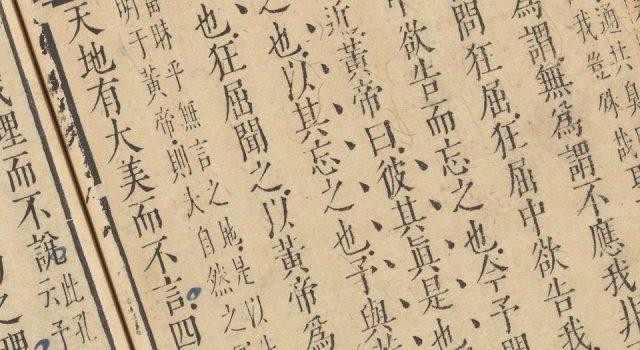 通共身
我豈殊哉
爲謂無爲謂不應我非
問狂屈狂屈中欲告我
中欲告而忘之也今予問
近黃帝曰彼其眞是也
也以其忘之也予與
也狂屈聞之以黃帝爲
昧乎無言之地是以
明于黃帝則大自然之
天地有大美而不言四
理而不說
此孔
云予
之理